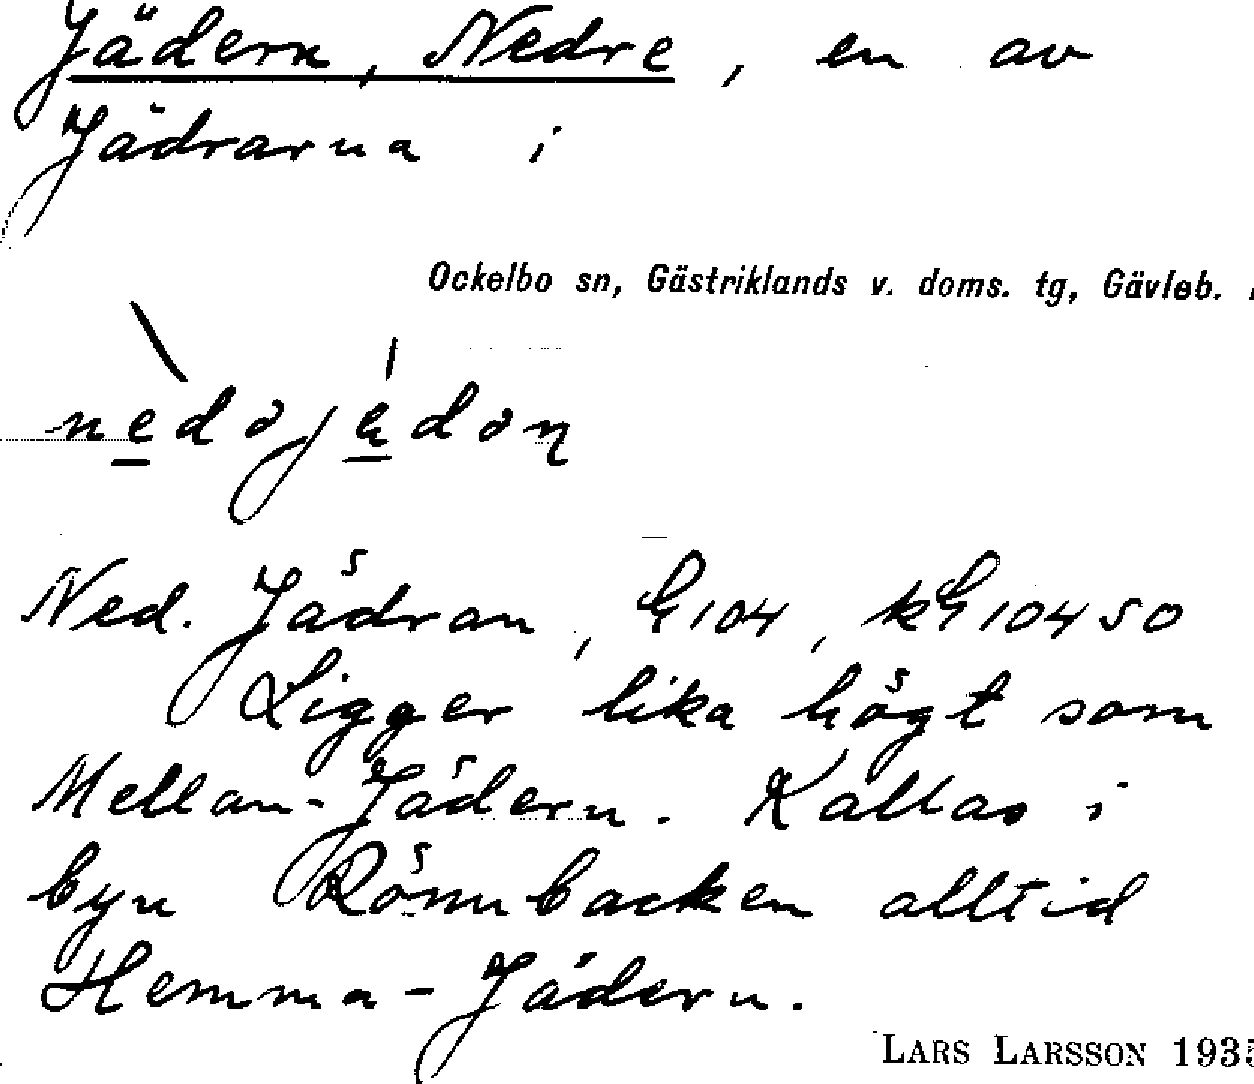 Jädern, Nedre, en av
Jädrarna i
Ockelbo sn, Gästriklands v. doms. tg, Gävleb.
Ned. Jädran, G104, kG10450
Ligger lika högt som
Mellan-Jädern. Kallas i
byn Rönnbacken alltid
Hemma-Jädern.
LARS LARSSON 1935